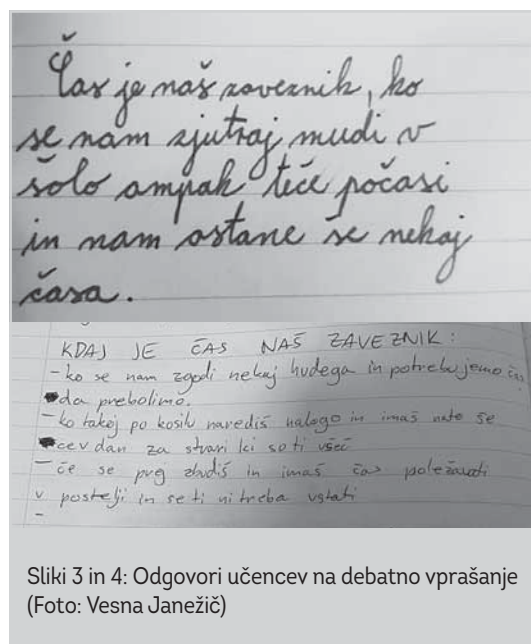 Čas je naš zaveznik, ko
se nam zjutraj mudi v
šolo ampak teče počasi
in nam ostane še nekaj
časa.
KDAJ JE ČAS NAŠ ZAVEZNIK:
- ko se nam zgodi nekaj hudega in potrebujemo čas
da prebolimo.
- ko takoj po kosilu narediš nalogo in imaš nato še
cev dan za stvari ki so ti všeč
- če se prej zbudiš in imaš čas poležavati
v postelji in se ti ni treba vstati
-
Sliki 3 in 4: Odgovori učencev na debatno vprašanje
(Foto: Vesna Janežič)